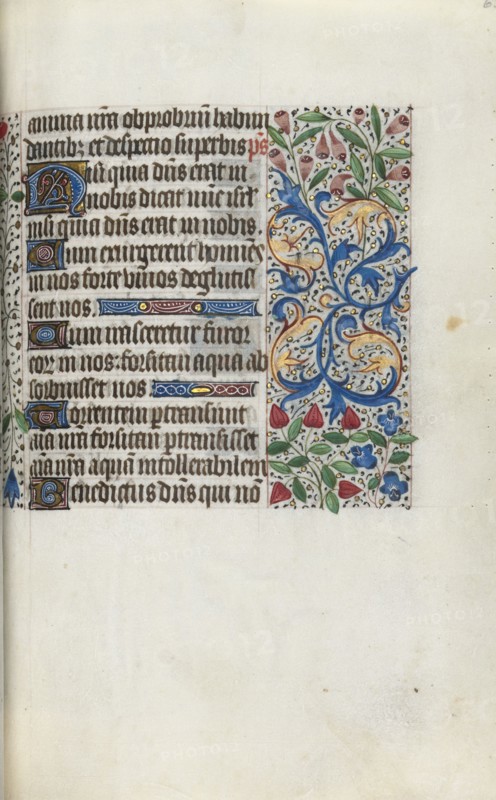 anima nr̄a obprobriū habun
dantibꝫ et despectio superbis p̄s
Nisi quia dn̄s erat in
nobis dicat nūc isrl̄
nisi quia dn̄s erat in nobis
Cum exurgerent homīes
in nos forte vivos deglutiss
sent nos.
Cum irasceretur furor
eorꝫ in nos: forsitan aqua ab
sorbuisset nos
Torrentem ꝑtransiuit
aīa nr̄a forsitan ꝑtransisset
aīa nr̄a aquā intollerabilem
Benedictus dn̄s qui nō